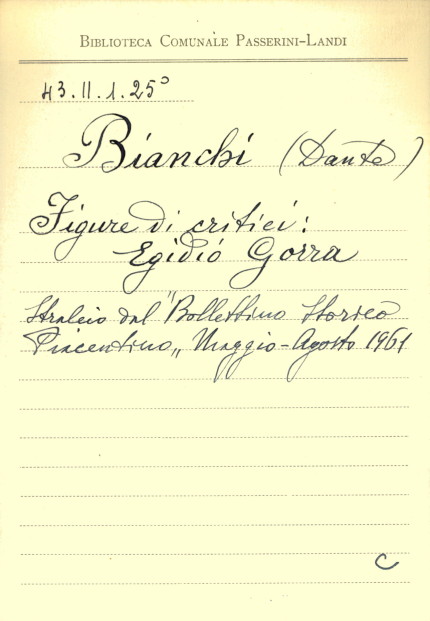 BIBLIOTECA COMUNALE PASSERINI-LANDI
43.II.1.25°
Bianchi (Dante)
Figure di critici:
Egidio Gorra
Stralcio dal "Bollettino Storico
Piacentino„ Maggio-Agosto 1961
C